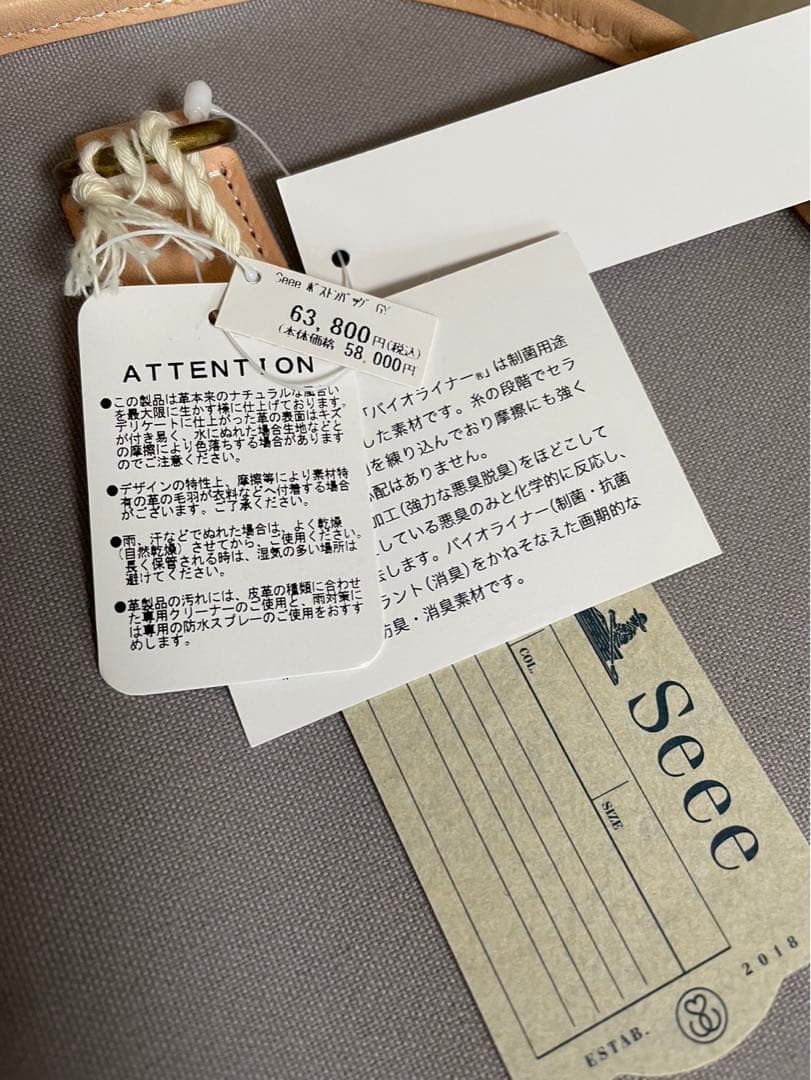 Seee ボストンバッグ GY
63,800円(税込)
(本体価格 58,000円
ATTENTION
●この製品は革本来のナチュラルな風合い
を最大限に生かす様に仕上げております。
デリケートに仕上がった革の表面はキズ
が付き易く、水にぬれた場合生地などと
の摩擦により色落ちする場合があります
のでご注意ください。
●デザインの特性上、摩擦等により素材特
有の革の毛羽が衣料などへ付着する場合
がございます。ご了承ください。
●雨、汗などでぬれた場合は、よく乾燥
(自然乾燥)させてから、ご使用ください。
長く保管される時は、湿気の多い場所は
避けてください。
●革製品の汚れには、皮革の種類に合わせ
た専用クリーナーのご使用と、雨対策に
は専用の防水スプレーのご使用をおすす
めします。
「バイオライナー®」は制菌用途
した素材です。糸の段階でセラ
を練り込んでおり摩擦にも強く
配はありません。
加工(強力な悪臭脱臭)をほどこして
している悪臭のみと化学的に反応し、
します。バイオライナー(制菌・抗菌
ラント(消臭)をかねそなえた画期的な
防臭・消臭素材です。
Seee
COL.
SIZE
ESTAB.
2018